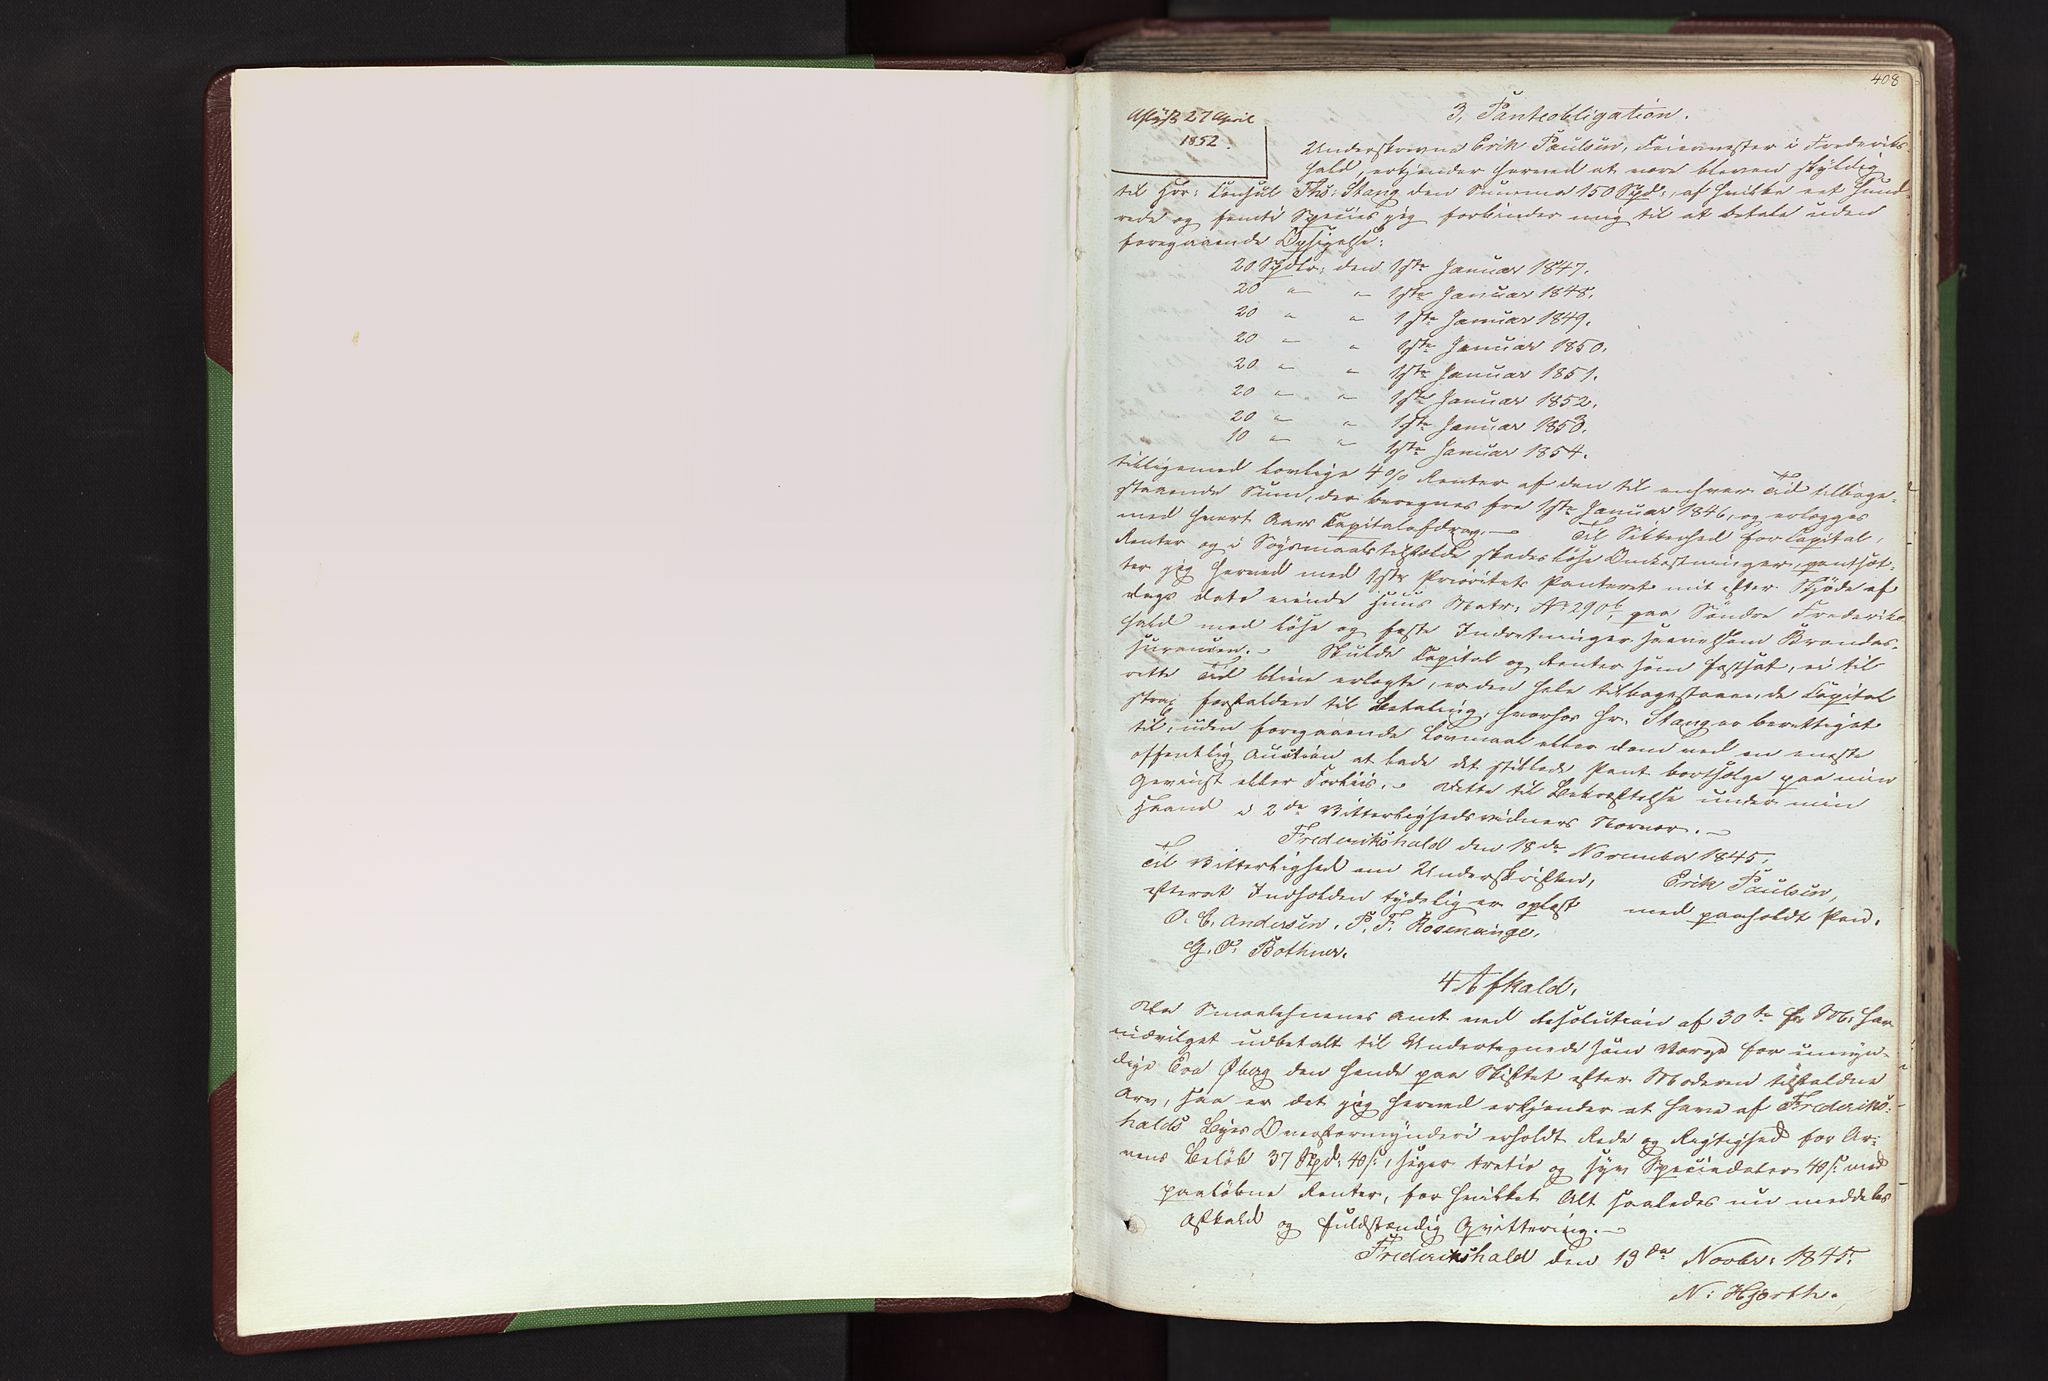 408
Aflyst 27 April
1852.
3, Panteobligation.
Underskrevne Erik Paulsen, Feiermester i Frederiks-
hald, erkjender herved at være bleven skyldig
til Hr: Consul Ths: Stang den Summa 150 Spd:, af hvilke eet hund-
rede og femti Species jeg forbinder mig til at betale uden
foregaaende Opsigelse:
20 Spdlr: den 1ste Januar 1847.
20 " " 1ste Januar 1848.
20 " " 1ste Januar 1849.
20 " " 1ste Januar 1850.
20 " " 1ste Januar 1851.
20 " " 1ste Januar 1852.
20 " " 1ste Januar 1853.
10 " " 1ste Januar 1854.
tilligemed lovlige 4 % Renter af den til enhver Tid tilbage-
staaende Sum, der beregnes fra 1ste Januar 1846, og erlægges
med hvert Aars Capitalafdrag. – Til Sikkerhed for Capital,
Renter og i Søgsmaalstilfælde skadesløse Omkostninger, pantsæt-
ter jeg herved med 1ste Prioritets Panteret mit efter Skjøde af
Dags Dato eiende Huus Matr: No 290b, paa Søndre Frederiks-
hald med løse og faste Indretninger saavelsom Brandas-
surancen. – Skulde Capital og Renter som fastsat, ei til
rette Tid blive erlagte, er den hele tilbagestaaende Capital
strax forfalden til Betaling, hvorhos Hr. Stang er berettiget
til, uden foregaaende Lovmaal eller Dom ved en eneste
offentlig Auction at lade det stillede Pant bortsælge paa min
Gevinst eller Forliis. – Dette til Bekræftelse under min
Haand i 2de Vitterlighedsvidners Nærvær. –
Frederikshald den 18de November 1845.
Til Vitterlighed om Underskriften, Erik Paulsen,
efterat Indholden tydelig er oplæst med paaholdt Pen.
O. C. Andersen. P. F. Rosenvinge.
G. O. Bothner.
4 Afkald.
Da Smaalehnenes Amt ved Resolution af 30te f. M. har
indvilget udbetalt til Undertegnede som Værge for umyn-
dige Eva Øberg den hende paa Skiftet efter Moderen tilfaldne
Arv, saa er det jeg herved erkjender at have af Frederiks-
halds Byes Overformynderi erholdt Rede og Rigtighed for Ar-
vens Beløb 37 Spd: 40 s:, siger tretio og syv Speciedaler 40 s: med
paaløbne Renter, for hvilket Alt saaledes nu meddeles
Afkald og fuldstændig Qvittering. –
Frederikshald den 13de Novbr: 1845.
N: Hjorth.